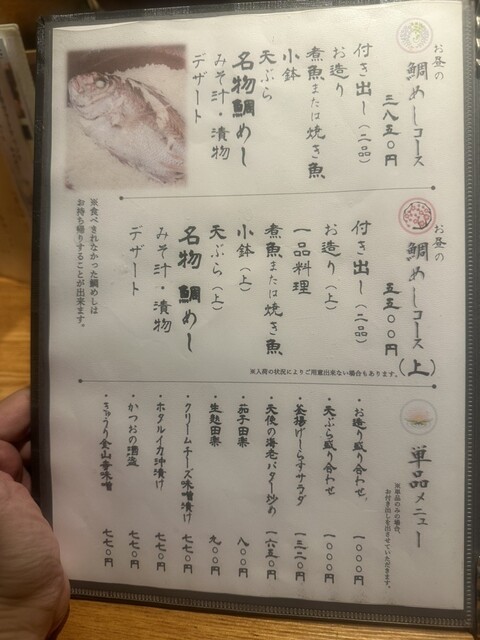 お昼の
鯛めしコース
三八五〇円
付き出し(二品)
お造り
煮魚または焼き魚
小鉢
天ぷら
名物鯛めし
みそ汁・漬物
デザート
※食べきれなかった鯛めしは
お持ち帰りすることが出来ます。
お昼の
鯛めしコース(上)
五五〇〇円
付き出し(二品)
お造り(上)
一品料理
煮魚または焼き魚
小鉢(上)
天ぷら(上)
名物鯛めし
みそ汁・漬物
デザート
※入荷の状況によりご用意出来ない場合もあります。
単品メニュー
※単品のみの場合、
お付き出しを出させていただきます。
・お造り盛り合わせ 一〇〇〇円
・天ぷら盛り合わせ 一〇〇〇円
・釜揚げしらすサラダ 一三二〇円
・天使の海老バター炒め 一六五〇円
・茄子田楽 八〇〇円
・生麩田楽 九〇〇円
・クリームチーズ味噌漬け 七七〇円
・ホタルイカ沖漬け 七七〇円
・かつおの酒盗 七七〇円
・きゅうり金山寺味噌 七七〇円